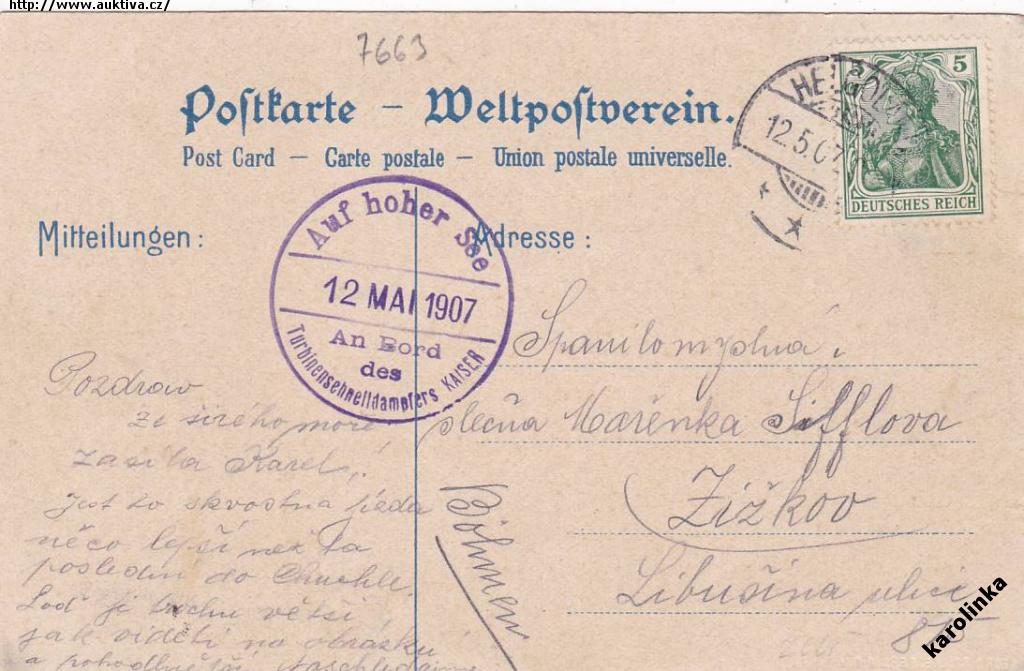 http://www.auktiva.cz/
7663
Postkarte – Weltpostverein.
Post Card – Carte postale – Union postale universelle.
5
DEUTSCHES REICH
12.5.07
Mitteilungen:
Adresse:
Auf hoher See
12 MAI 1907
An Bord
des
Turbinenschnelldampfers KAISER
Pozdrav
ze širého moře
zasílá Karel
Jest to skvostná jízda
něco lepší než ta
poslední do Chuchle.
Loď je trochu větší
jak viděti na obrázku
a pohodlnější
Spanilomyslná
slečna Mařenka Sifflova
Žižkov
Libušina ulice
Böhmen
karolinka